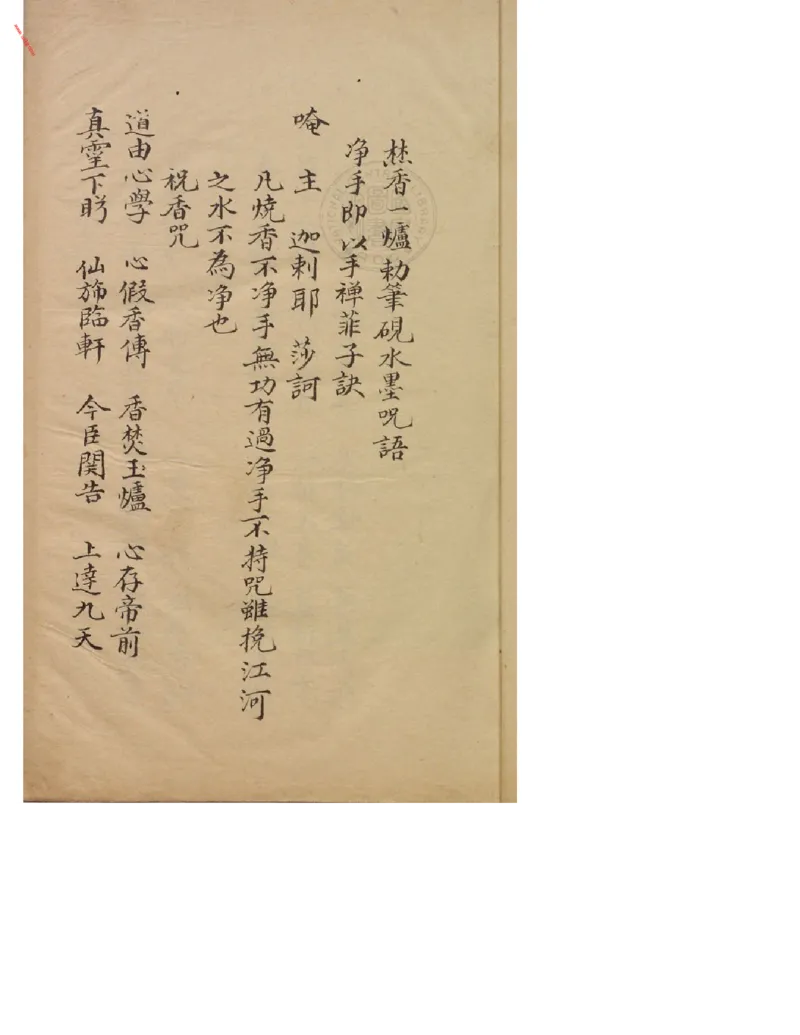 焚香一爐勅筆硯水墨呪語
净手即以手禅菲子訣
唵 主 迦剌耶 莎訶
凡燒香不净手無功有過净手不持咒雖挽江河
之水不為净也
祝香咒
道由心學 心假香傳 香焚玉爐 心存帝前
真靈下盻 仙斾臨軒 今臣関告 上達九天